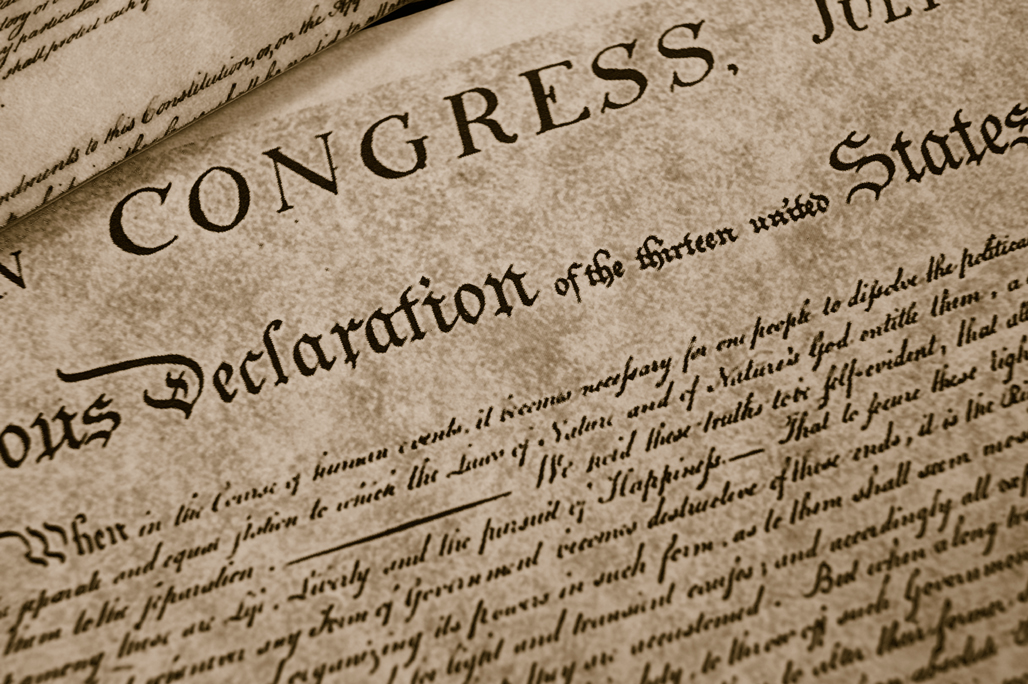 particular
shall protect each of
to this Constitution, or, on the App
N CONGRESS, JULY
ous Declaration of the thirteen united States
When in the Course of human events, it becomes necessary for one people to dissolve the political
separate and equal station to which the Laws of Nature and of Nature's God entitle them, a
them to the separation. We hold these truths to be self-evident, that all
among these are Life, Liberty and the pursuit of Happiness.— That to secure these righ
any Form of Government becomes destructive of these ends, it is the Ri
organizing its powers in such form, as to them shall seem mos
for light and transient causes; and accordingly all exp
they are accustomed. But when a long tra
duty, to throw off such Governmen
to alter their former
absolute